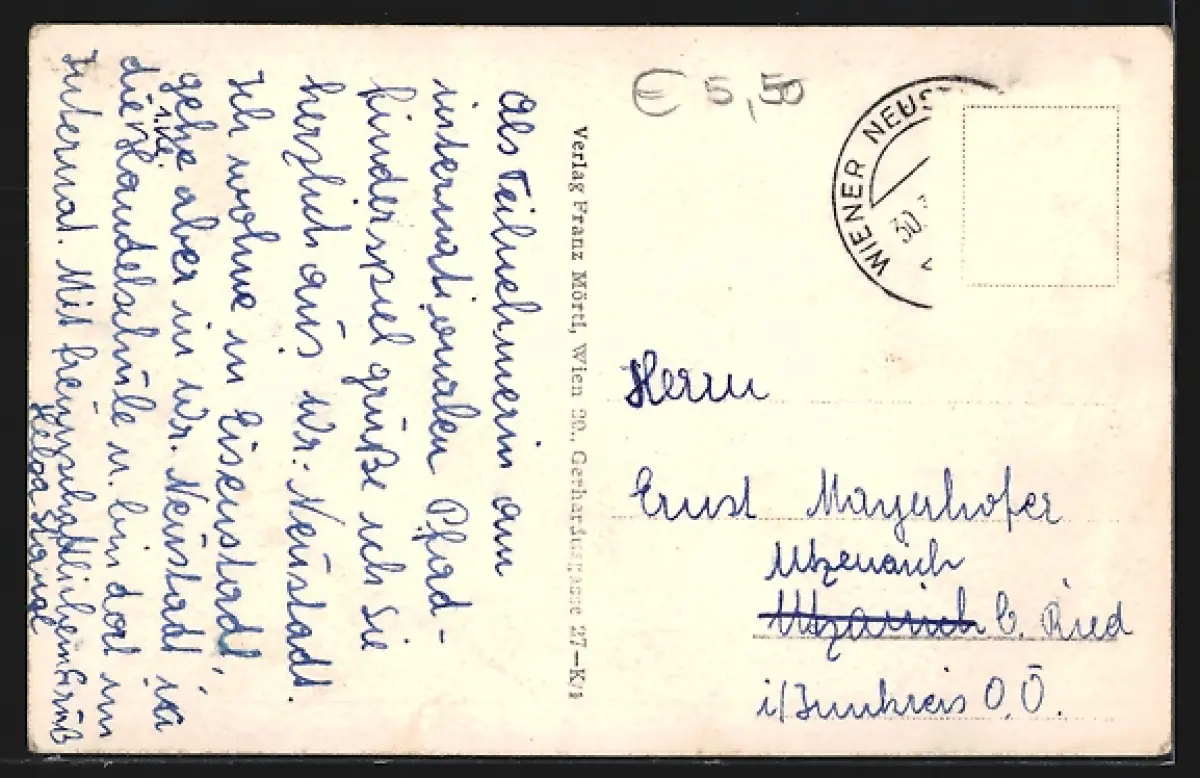 Als Teilnehmerin am
internationalen Pfad-
finderspiel grüße ich Sie
herzlich aus Wr. Neustadt.
Ich wohne in Eisenstadt,
gehe aber in Wr. Neustadt in
die Handelschule u. bin dort im
Internat. Mit freundschaftlichem Gruß
Helga Stangl
Verlag Franz Mörtl, Wien 20., Gerhardusgasse 27–K/1
€ 5,50
WIENER NEUST
30.
Herrn
Ernst Mayerhofer
Utzenaich
b. Ried
i/Innkreis O.Ö.